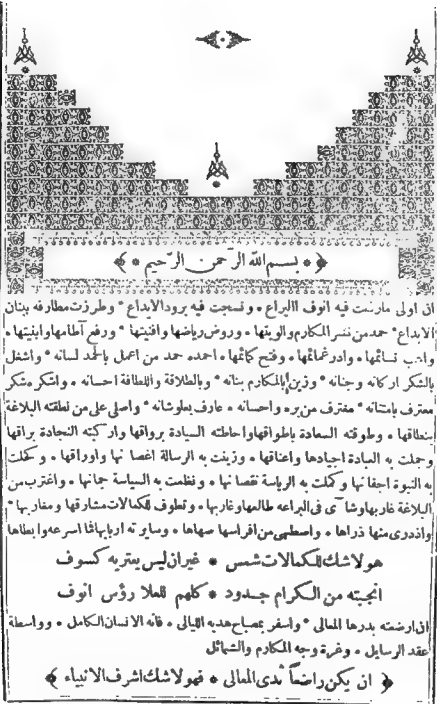 ﴿ * بسم الله الرحمن الرحيم * ﴾
ان اولى مارشت فيه انوف اليراع * ونسجت فيه برود الابداع * وطرزت مطارفه ببنان
الابداع * حمد من نشر المكارم والويتها * وروض رياضها وافنيتها * ورفع آطامها وابنيتها *
نسائمها * وادر غمائمها * وفتح كمائمها * احمده حمد من اعمل بالحمد لسانه * واشغل
بالشكر اركانه وجنانه * وزين بالمكارم بنانه * وبالطلاقة واللطافة احسانه * واشكره شكر
معترف بامتنانه * مغترف من بره واحسانه * عارف بعلو شانه * واصلي على من نطقته البلاغة
بنطاقها * وطوقته السعادة باطواقها واحاطته السيادة برواقها واركبته النجادة براقها
وحملت به العبادة اجيادها واعناقها * وزينت به الرسالة اغصانها واوراقها * وكملت
به النبوة اجفانها وكملت به الرياسة نقصانها * ونظمت به السياسة جمانها * واغترب من
البلاغة غاربها وشآى في البراعه طالعها وغاربها * وتطوف للكمالات مشارقها ومغاربها *
واذدرى منها ذراها * واصطهى من افراسها صهاها * وساير ته اربابها فما اسرعه وابطاها
هو لاشك للكمالات شمس * غير ان ليس يعتريه كسوف
انجبته من الكرام جدود * كلهم للعلا رؤس انوف
ان ارضعته بدرها المعالى * واسفر بمصباح هديه الليالى * فانه الانسان الكامل * وواسطة
عقد الرسايل * وغرة وجه المكارم والشمائل
﴿ ان يكن راضعاً ثدى المعالى * فهو لاشك اشرف الانبياء ﴾